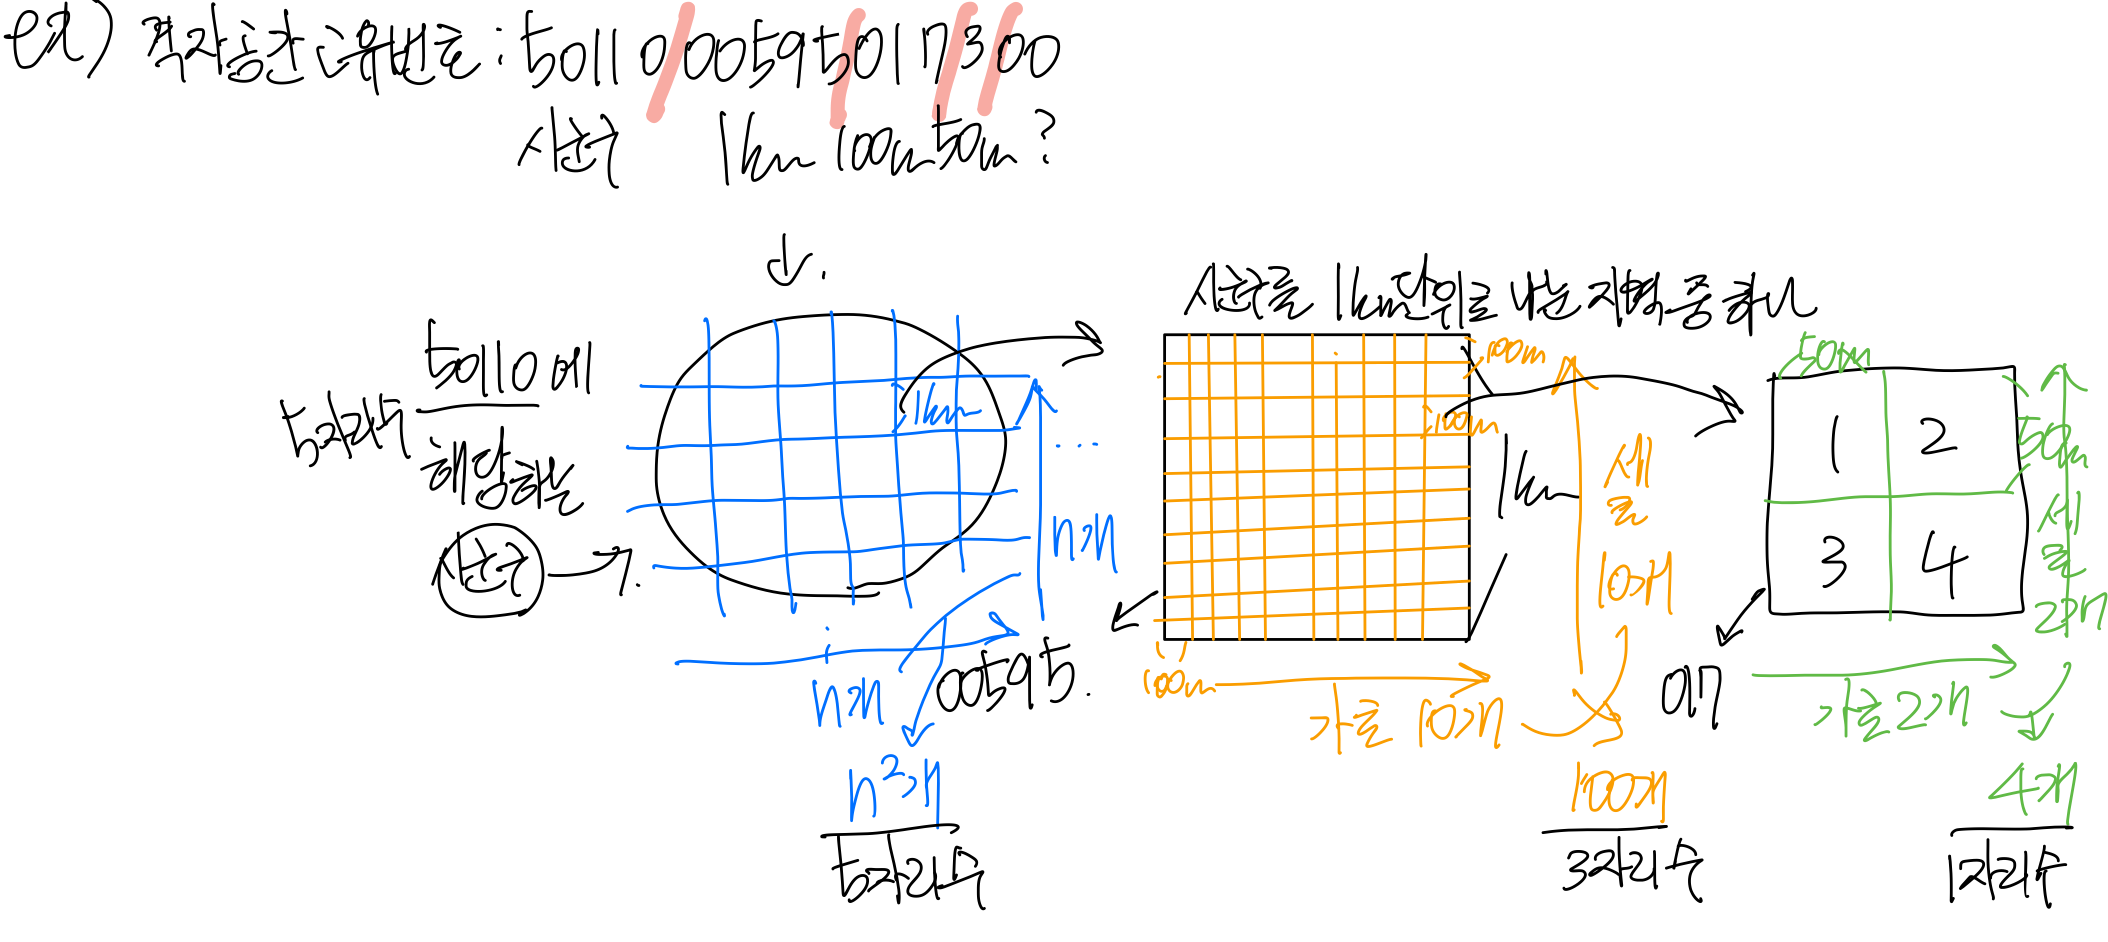 ex) 격자공간고유번호 : 5011000595017300
시군구 1km 100m 50m ?
시군구를 1km단위로 나눈 지역 중 하나
5자리수
50110에
해당하는
시군구
1km
...
n개
n개
n²개
5자리수
00595.
100m
100m
1km
세로
10개
100m
가로 10개
100개
3자리수
50m
50m
1 2
3 4
세로
2개
017
가로 2개
4개
1자리수